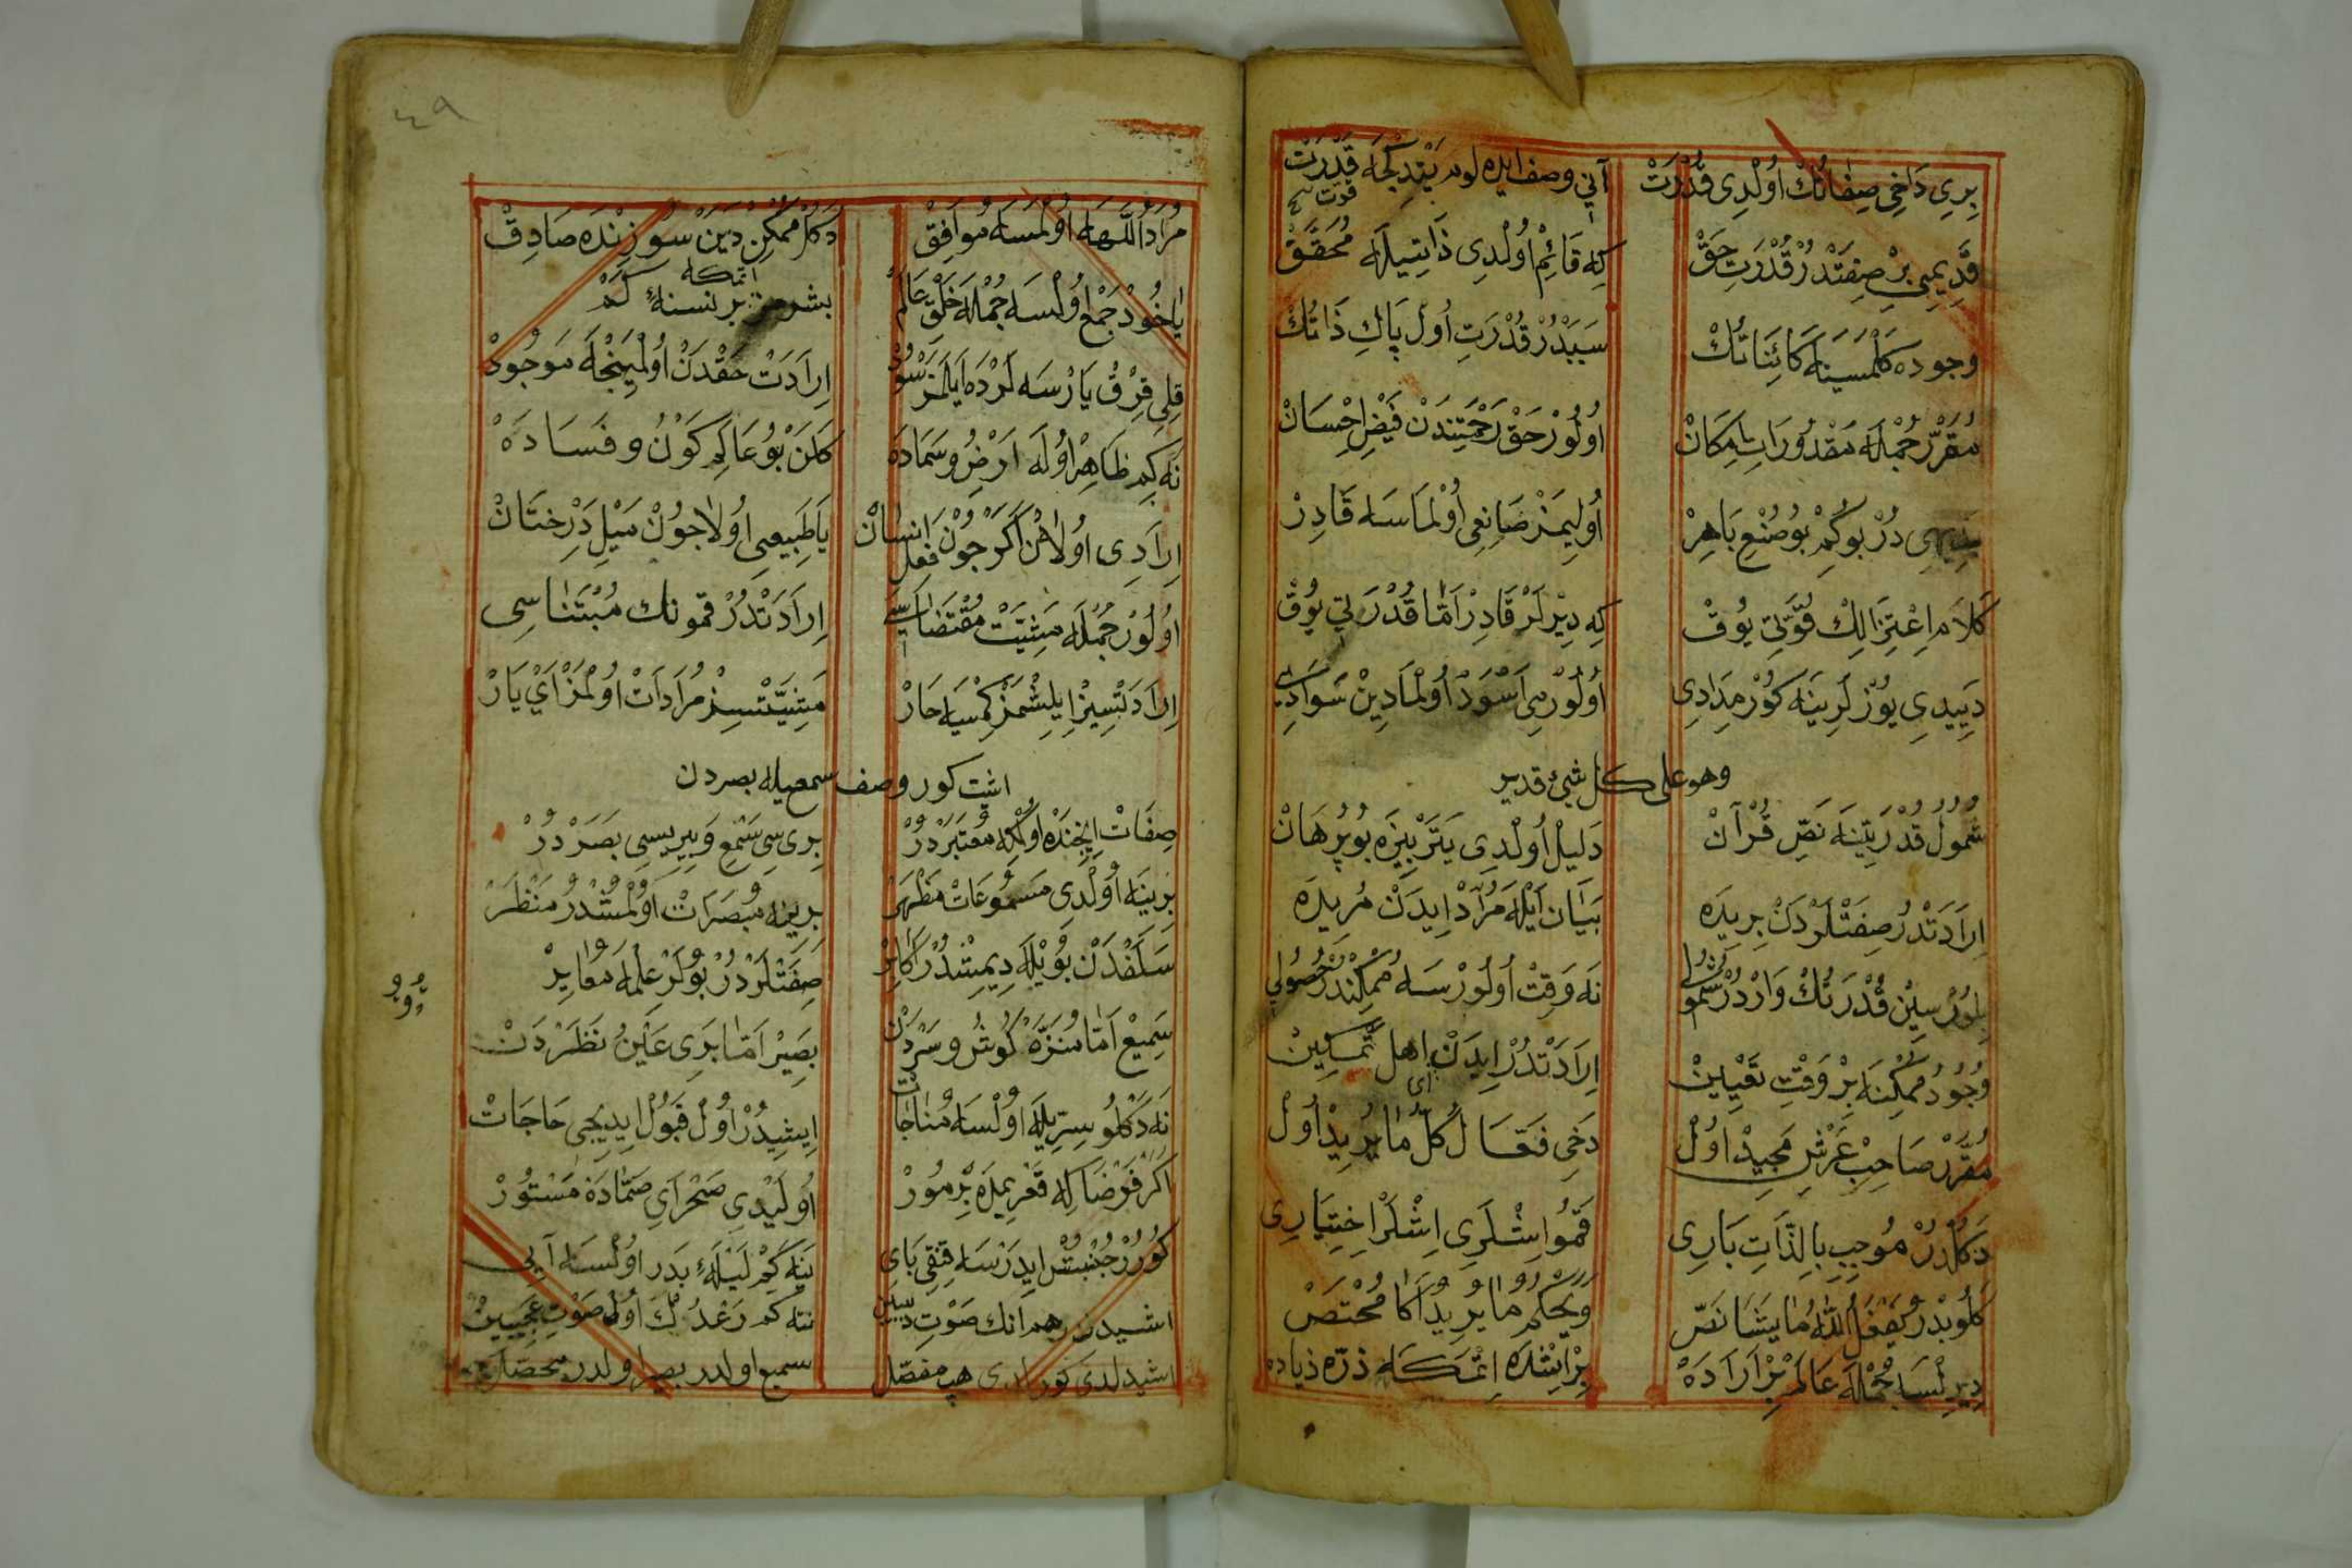 بِرِي دَاخِي صِفَاتُكْ اُولْدِى قُدْرَتْ
آنِي وصف ايده لوم يَتْدِكْجَه قُدْرَتْ
قوت
قَدِيمِي بِرْ صِفَتْدُرْ قُدْرَتِ حَقْ
كِه قَائِمْ اُولْدِى ذَاتِيلَه مُحَقَّقْ
وجوده كَلْمَسِينَه كَائِنَاتُكْ
سَبَبْدُرْ قُدْرَتِ اُولْ پَاكِ ذَاتُكْ
مُقَرَّرْ جُمْلَه مَقْدُورَاتِ اِمْكَانْ
اُولُورْ حَقْ رَحْمَتِنْدَنْ فَيْضِ اِحْسَانْ
بَدِيهِى دُرْ بُو كِمْ بُو صُنْعِ بَاهِرْ
اُولِيمَزْ صَانِعِى اُولْمَاسَه قَادِرْ
كَلَامِ اِعْتِزَالِكْ قُوَّتِى يُوقْ
كِه دِيرْلَرْ قَادِرْ اَمَّا قُدْرَتِى يُوقْ
دَيِيدِى يُوزْلَرِينَه كُورْ مِدَادِى
اُولُورْمِى اَسْوَدْ اُولْمَادِينْ سَوَادِى
وهو على كل شئ قدير
شُمُولْ قُدْرَتِينَه نَصِّ قُرْآنْ
دَلِيلْ اُولْدِى يَتَرْ بِيزَه بُو بُرْهَانْ
اِرَادَتْدُرْ صِفَتْلَرْدَنْ بِرِيدَه
بَيَانْ اَيْلَه مُرَادْ اِيدَنْ مُرِيدَه
بِلُورْسِينْ قُدْرَتُكْ وَارْدُرْ شُمُولِى
نَه وَقِتْ اُولُورْسَه مُمْكِنْدُرْ حُصُولِى
وُجُودُ مُمْكِنَه بِرْ وَقْتِ تَعْيِينْ
اِرَادَتْدُرْ اِيدَنْ اى اهل تَمْكِينْ
مُقَرَّرْ صَاحِبِ عَرْشِ مَجِيدْ اُولْ
دَخِى فَعَّالُ كُلِّ مَا يُرِيدْ اُولْ
دَكُلْدُرْ مُوجِبِ بِالذَّاتِ بَارِى
قَمُو اِشْلَرِى اِشْلَرْ اِخْتِيَارِى
كَلُوبْدُرْ يَفْعَلُ اللهُ مَا يَشَا نَصّ
وَيَحْكُمُ مَا يُرِيدُ اَكَا مُخْتَصّ
دِيرِلْسَا جُمْلَه عَالَمْ بِرْ اَرَادَه
بِرْ اِيشْدَه اِتْمَكَه ذرّه زياده
٤٩
مُرَادُ اللهَه اُولْمَسَه مُوَافِقْ
دَكُلْ مُمْكِنْ دَيَنْ سُوزِنْدَه صَادِقْ
يَاخُودْ جَمْع اُولْسَه جُمْلَه خَلْقِ عَالَمْ
بشرمز بر نسنه اتمكه كم
قِلِى قِرْقْ يَارْسَه لَرْدَه اَيْلَمَزْ سُودْ
اِرَادَتْ حَقْدَنْ اُولْمَيِنْجَه مَوْجُودْ
نَه كِمْ ظَاهِرْ اُولَه اَرْضُ و سَمَادَه
كَلَنْ بُو عَالَمِ كَوْنُ و فَسَادَه
اِرَادِى اُولَانْ اَكَرْ جُونْ فِعْلِ اِنْسَانْ
يَا طَبِيعِى اُولَا جُونْ مَيْلِ دَرِخْتَانْ
اُولُورْ جُمْلَه مَشِيَّتْ مُقْتَضَاسِى
اِرَادَتْدُرْ قمونك مُبْتَنَاسِى
اِرَادَتْسِيزْ اِيلِشْمَزْ كِمْسَيَه خَارْ
مَشِيَّتْسِيزْ مُرَادَاتْ اُولْمَزْ اَيْ يَارْ
اشت كور وصف سمعيله بصردن
صِفَاتْ اِيچِنْدَه اُولْكِه مُعْتَبَرْدُرْ
بِرِى سِى سَمْعِ وَ بِيرِيسِى بَصَرْدُرْ
بِرِينَه اُولْدِى مَسْمُوعَاتْ مَظْهَرْ
بِرِينَه مُبْصَرَاتْ اُولْمُشْدُرْ مَنْظَرْ
سَلَفْدَنْ بُويْلَه دِيمِشْدُرْ اَكَابِرْ
صِفَتْلَرْدُرْ بُولَرْ عِلْمَه مُغَايِرْ
سَمِيعْ اَمَّا مُنَزَّه كُوشُ و سَرْدَنْ
بَصِيرْ اَمَّا بَرِى عَيْنُ نَظَرْدَنْ
نَه دَكْلُو سِرِّيلَه اُولْسَه مُنَاجَاتْ
اِيشِيدُرْ اُولْ قَبُولْ اِيدِيجِى حَاجَاتْ
اَكَرْ فَرْضَا كِه قَعْرِ يَمْدَه بِرْ مُورْ
اُولَيْدِى صَخْرَاىِ صَمَّادَه مَسْتُورْ
كُورُرْ جُنْبُشْ اِيدَرْسَه قَنْغِى پَاى
يَنَه كِمْ لَيْلَۀ بَدَر اُولْسَه آيى
اشيدر هم انك صَوْتِ دبيبن
نته كم رَعْدُكْ اُولْ صَوْتِ عَجِيبِينْ
اشيدلدى كورلدى هپ مفصّل
سميع اولدر بصير اولدر محصّل